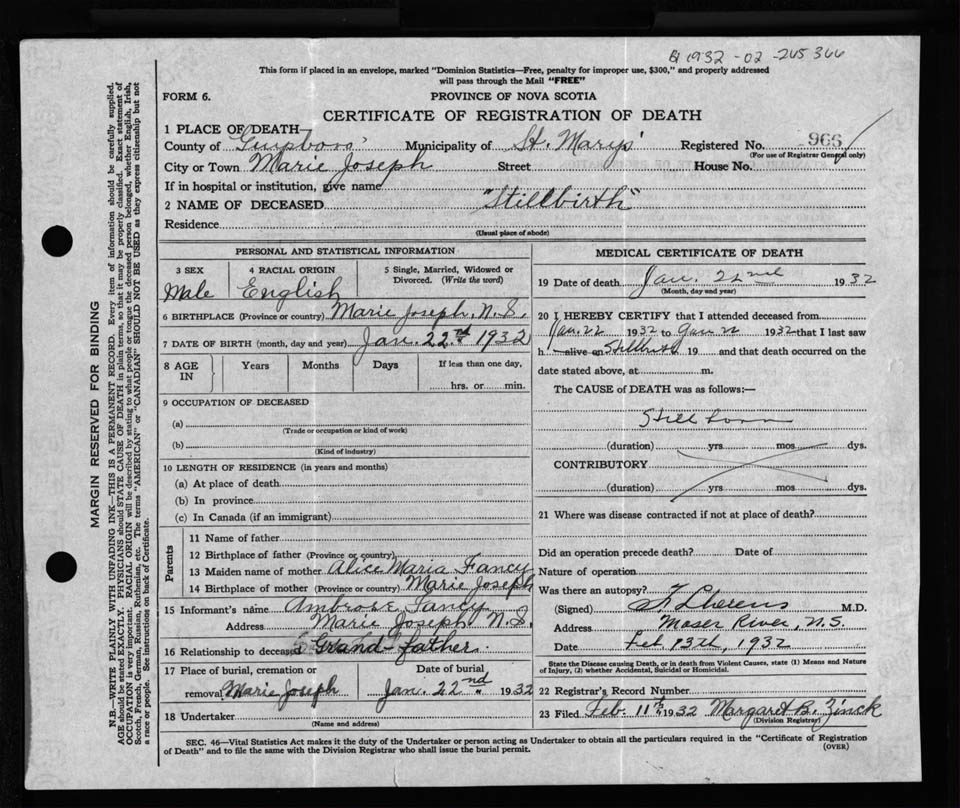 B 1932 - 02 - 265366
This form if placed in an envelope, marked "Dominion Statistics—Free, penalty for improper use, $300," and properly addressed
will pass through the Mail "FREE"
FORM 6.
PROVINCE OF NOVA SCOTIA
CERTIFICATE OF REGISTRATION OF DEATH
1 PLACE OF DEATH
County of Guysboro Municipality of St. Marys Registered No. 966
(For use of Registrar General only)
City or Town Marie Joseph Street House No.
If in hospital or institution, give name
2 NAME OF DECEASED "Stillbirth"
Residence
(Usual place of abode)
PERSONAL AND STATISTICAL INFORMATION
3 SEX 4 RACIAL ORIGIN 5 Single, Married, Widowed or Divorced. (Write the word)
Male English
6 BIRTHPLACE (Province or country) Marie Joseph, N.S.
7 DATE OF BIRTH (month, day and year) Jan. 22nd 1932
8 AGE IN Years Months Days If less than one day,
hrs. or min.
9 OCCUPATION OF DECEASED
(a)
(Trade or occupation or kind of work)
(b)
(Kind of industry)
10 LENGTH OF RESIDENCE (in years and months)
(a) At place of death
(b) In province
(c) In Canada (if an immigrant)
Parents
11 Name of father
12 Birthplace of father (Province or country)
13 Maiden name of mother Alice Maria Fancy
14 Birthplace of mother (Province or country) Marie Joseph
15 Informant's name Ambrose Fancy
Address Marie Joseph N.S.
16 Relationship to deceased Grand father
17 Place of burial, cremation or Date of burial
removal Marie Joseph Jan. 22nd 1932
18 Undertaker
(Name and address)
MEDICAL CERTIFICATE OF DEATH
19 Date of death Jan. 22nd 1932
(Month, day and year)
20 I HEREBY CERTIFY that I attended deceased from
Jan. 22 1932 to Jan 22 1932 that I last saw
h alive on Stillbirth 19 and that death occurred on the
date stated above, at m.
The CAUSE of DEATH was as follows:—
Still born
(duration) yrs mos dys.
CONTRIBUTORY
(duration) yrs mos dys.
21 Where was disease contracted if not at place of death?
Did an operation precede death? Date of
Nature of operation
Was there an autopsy?
(Signed) M.D.
Address Moser River, N.S.
Date Feb 13th, 1932
State the Disease causing Death, or in death from Violent Causes, state (1) Means and Nature
of Injury, (2) whether Accidental, Suicidal or Homicidal.
22 Registrar's Record Number
23 Filed Feb. 11th 1932 Margaret B. Zinck
(Division Registrar)
SEC. 46—Vital Statistics Act makes it the duty of the Undertaker or person acting as Undertaker to obtain all the particulars required in the "Certificate of Registration
of Death" and to file the same with the Division Registrar who shall issue the burial permit.
(OVER)
MARGIN RESERVED FOR BINDING
N.B.—WRITE PLAINLY WITH UNFADING INK—THIS IS A PERMANENT RECORD. Every item of information should be carefully supplied.
AGE should be stated EXACTLY. PHYSICIANS should STATE CAUSE OF DEATH in plain terms, so that it may be properly classified. Exact statement of
OCCUPATION is very important. RACIAL ORIGIN will be described by stating to what people or language the deceased person belonged, whether English, Irish,
Scotch, French, German, Russian, Ruthenian, etc. The terms "AMERICAN" or "CANADIAN" SHOULD NOT BE USED as they express citizenship but not
a race or people. See instructions on back of Certificate.